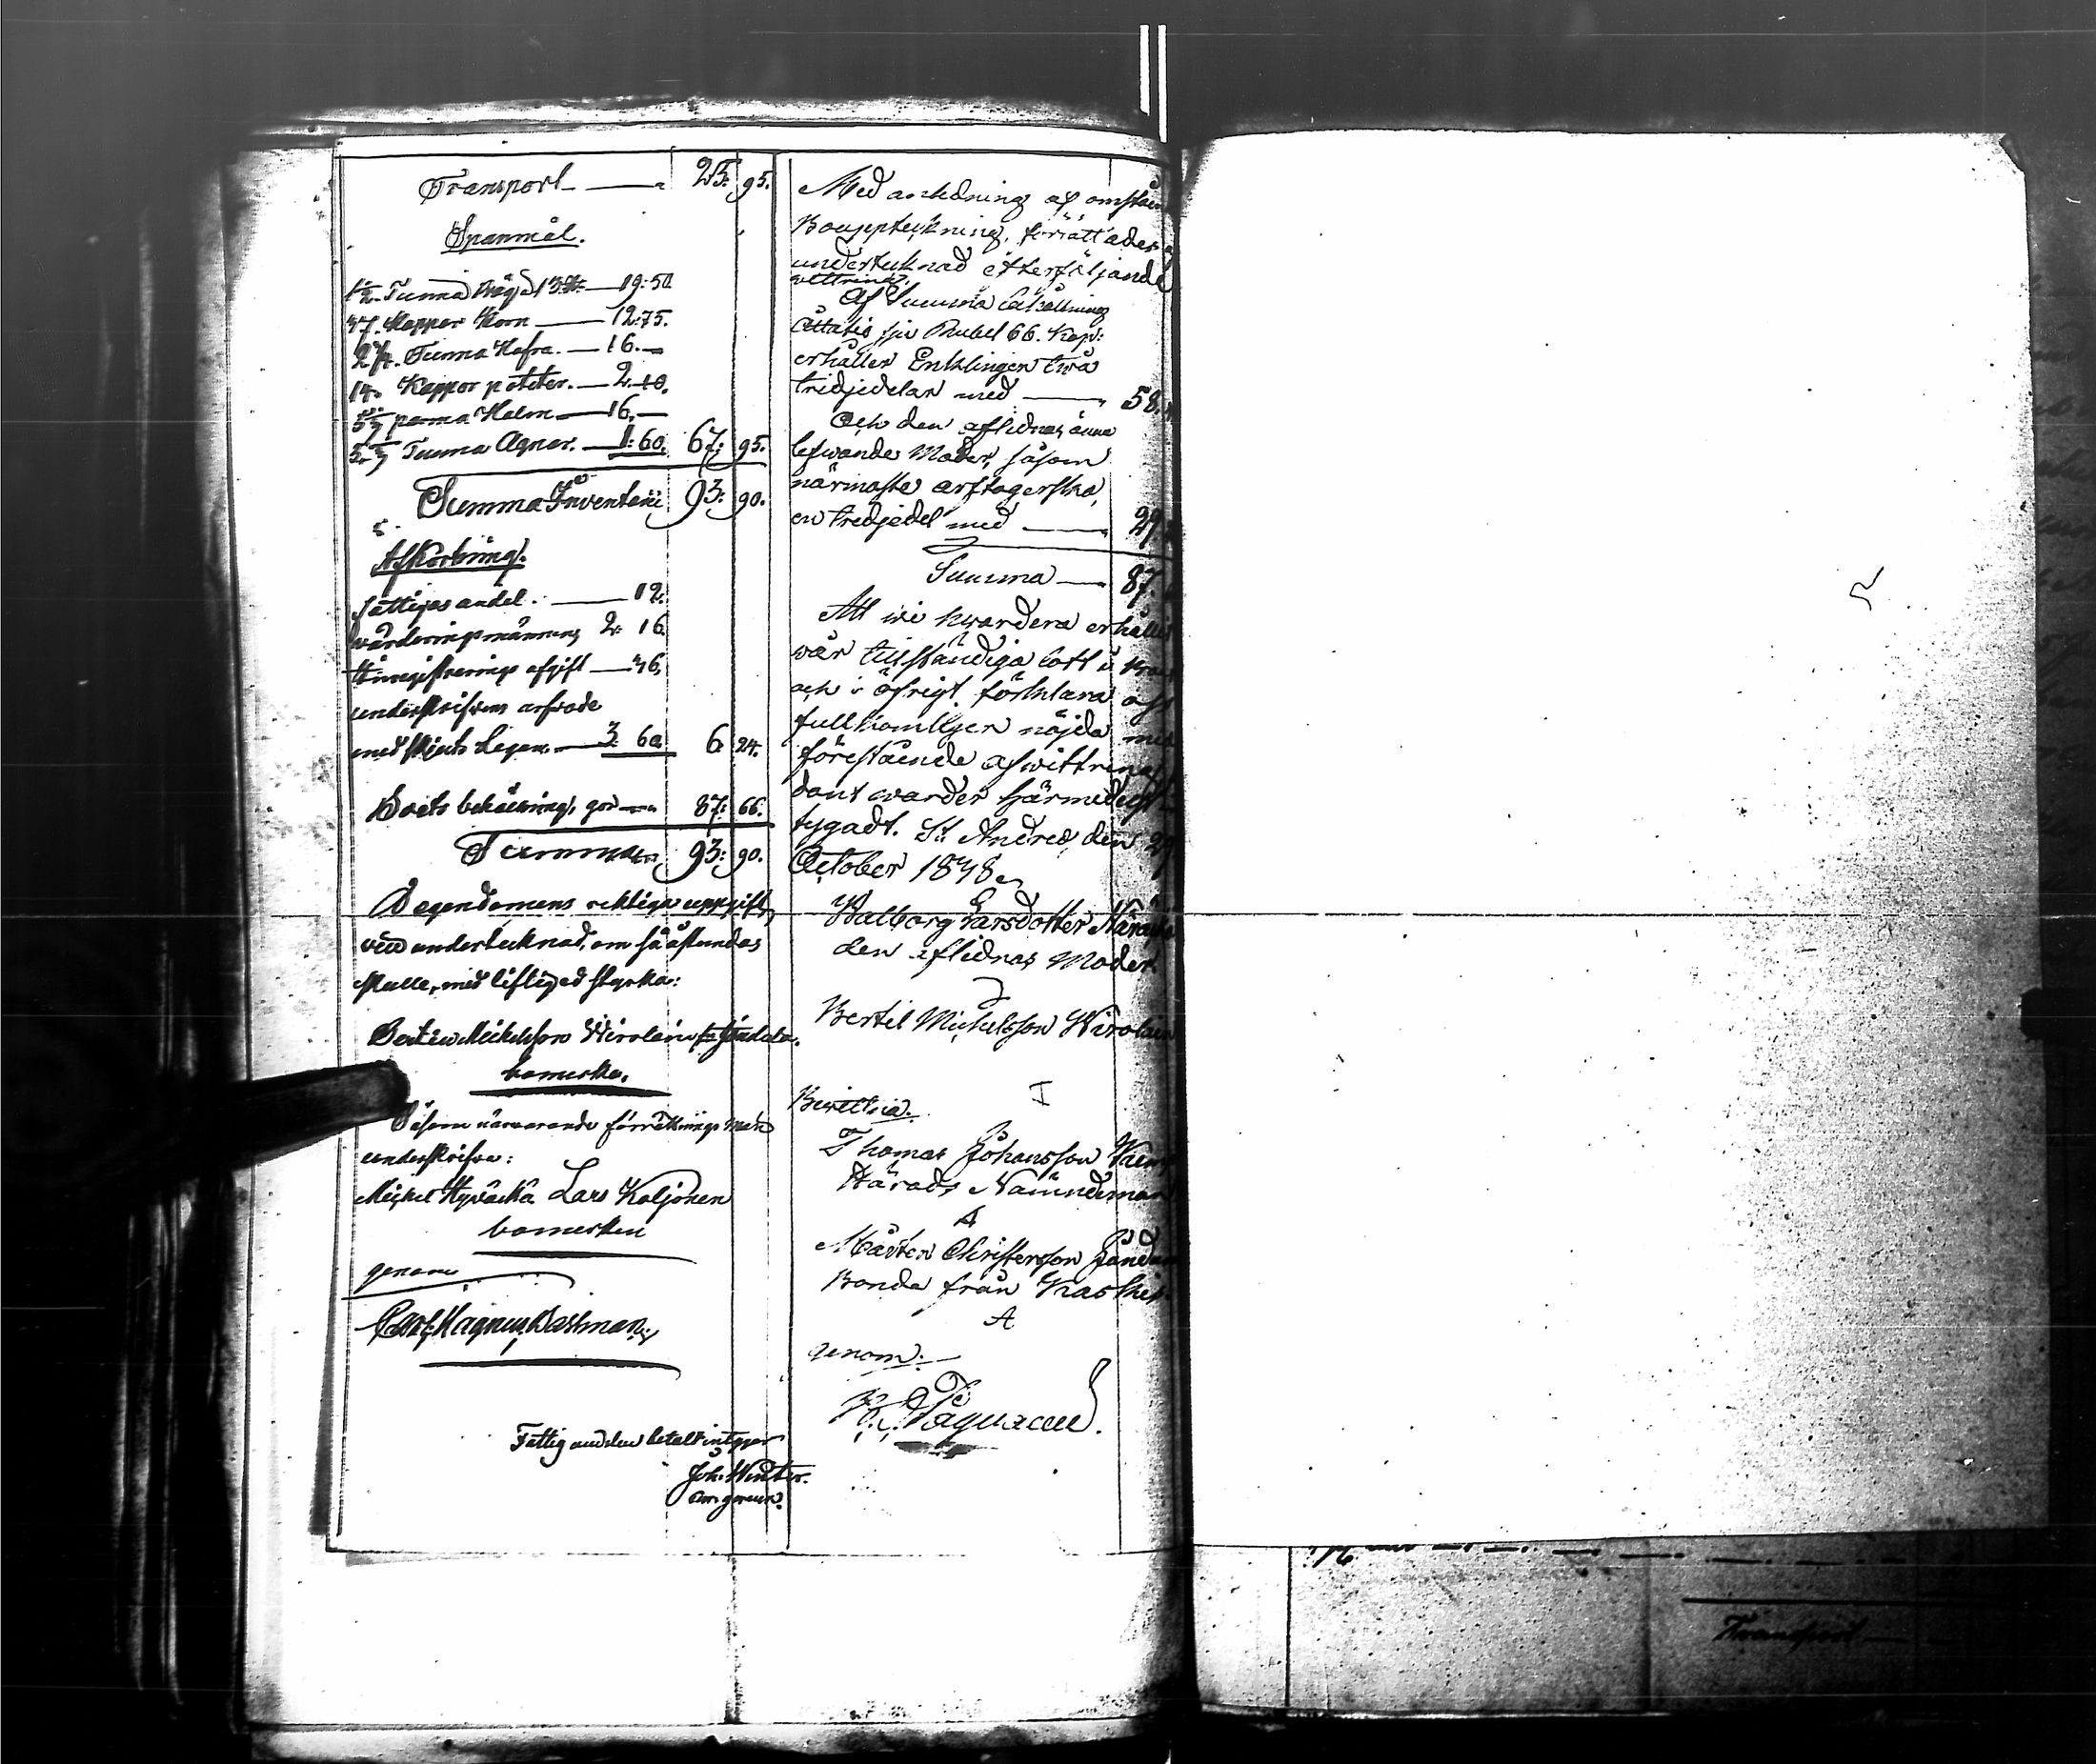 Transport 25. 95.
Spanmål.
1½ Tunna Råg 13 19: 50
47. Kappar Korn 12: 75.
Tunna Hafra. 16.
14. Kappor potäter. 2. 10.
Halm 16.
Tunna Agnar. 1: 60. 67: 95.
Summa Inventarii 93: 90.
Afkortning.
fattiges andel. 12.
wärderingsmännens 2. 16
Inregistrerings afgift 46.
underskrifvens arfvode
med skjuts legan. 3. 60 6. 24.
Boets behållning, god 87: 66.
Summa 93: 90.
Egendomens riktiga uppgift,
undertecknad, om så åstundas
skulle, med liflig ed styrka:
Mickelsson Wirolain
bomerke.
Såsom närvarande förrättnings män
underskrifva:
Michel Hyväkä Lars Koljonen
bomerken
genom
Magnus Wassman
Fattig andelen betalt intygar
Joh. Winter.
Med anledning af omstå
Bouppteckning, förrättades
undertecknad efterföljande
wittring.
Af Summa behållning
åttatio sju Rubel 66. Kop:
erhåller Enklingen twå
tridjedelar med 58.
Och den aflidnes ännu
lefwande Moder, såsom
närmaste arftagerska,
en tredjedel med 29
Summa 87.
Att wi hwardera erhållit
wår tillständiga lott
och i öfrigt förklara oss
fullkomligen nöjda med
förestående afwittring
dant warder härmedelst
tygadt. St Andreæ den 29
October 1848.
Walborg Larsdotter
den aflidnas Moder
Bertil Michelsson Wirolain
Bewittna.
Thomas Johansson
Härads Nämndeman
A
Mårten Christersson
Bonde från Kaskis
A
genom.